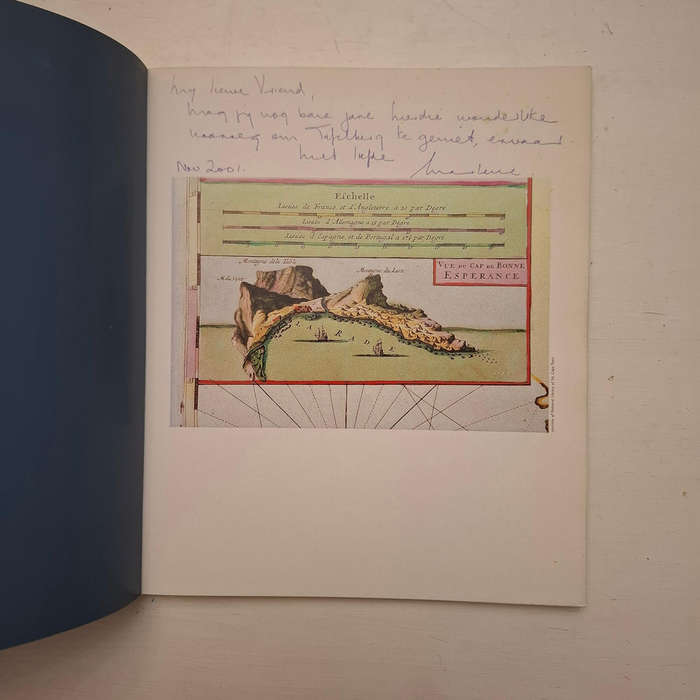 My liewe Vriend,
mag jy nog baie jare hierdie wonderlike
om Tafelberg te geniet, ervaar.
met liefde
Nov 2001.
Eſchelle
Lieües de France, et d'Angleterre a 20 par Degré
Lieües d'Allemagne a 15 par Degré
Lieües d'Espagne, et de Portugal a 17½ par Degré
Montagne de la Table
Montagne du Lion
VUE DU CAP DE BONNE
ESPERANCE
LA RADE